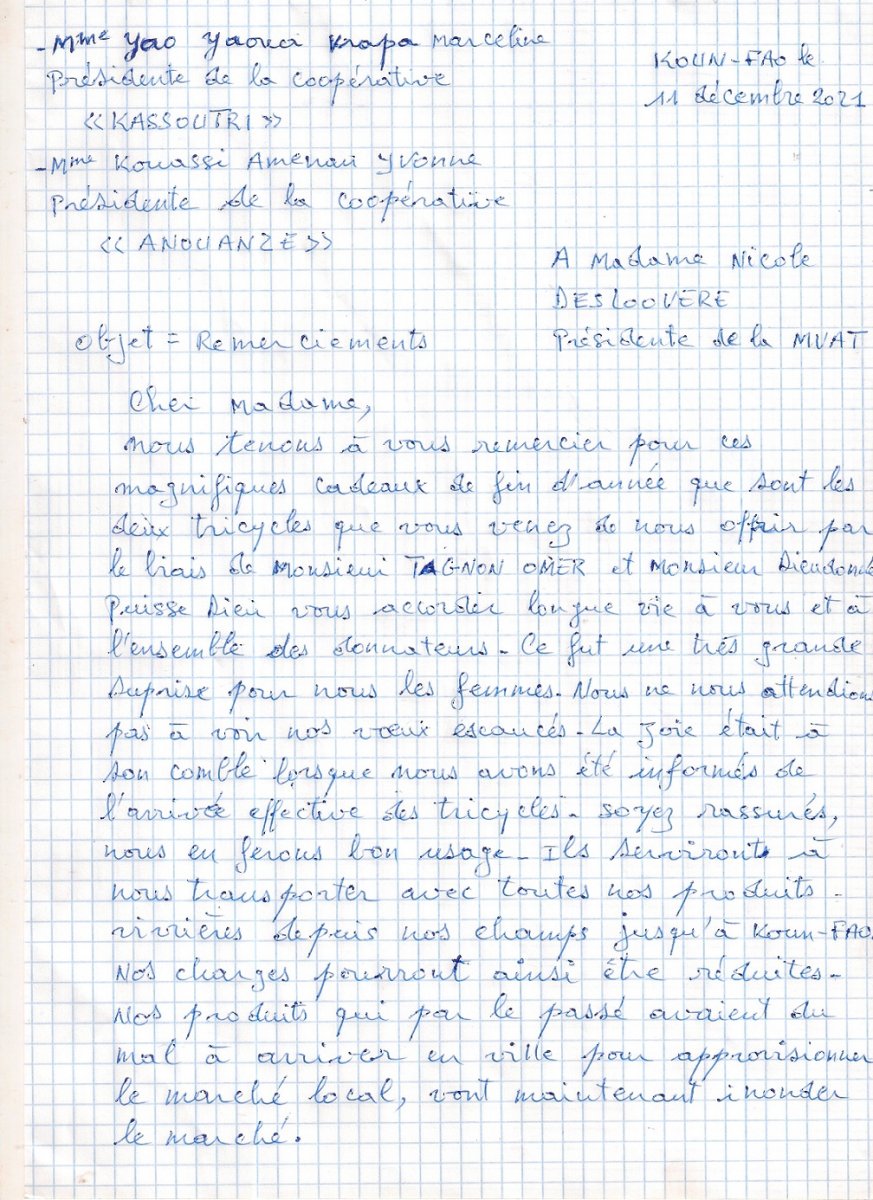 - Mme Yao Yaoua Krapa Marceline
Présidente de la coopérative
KOUN-FAO le
11 décembre 2021
<<KASSOUTRI>>
- Mme Kouassi Amenan Yvonne
Présidente de la coopérative
<< ANOUANZE>>
A Madame Nicole
DESLOOVERE
Présidente de la MVAT
Objet = Remerciements
Cher Madame,
nous tenons à vous remercier pour ces
magnifiques cadeaux de fin d'année que sont les
deux tricycles que vous venez de nous offrir par
le biais de Monsieur TAGNON OMER et Monsieur Dieudonné
Puisse Dieu vous accorder longue vie à vous et à
l'ensemble des donnateurs. Ce fut une très grande
suprise pour nous les femmes. Nous ne nous attendions
pas à voir nos vœux escaucés. La joie était à
son comble lorsque nous avons été informés de
l'arrivée effective des tricycles. Soyez rassurés,
nous en ferons bon usage. Ils serviront à
nous transporter avec toutes nos produits
vivrières depuis nos champs jusqu'à Koun-FAO.
Nos charges pourront ainsi être réduites.
Nos produits qui par le passé avaient du
mal à arriver en ville pour approvisionner
le marché local, vont maintenant inonder
le marché.